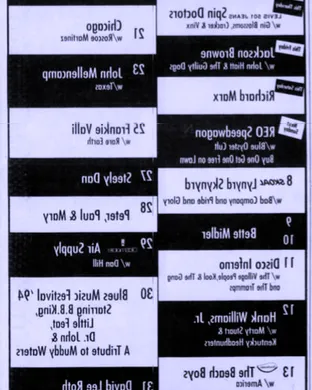 This Thursday
LEVIS 501 JEANS
Spin Doctors
w/ Gin Blossoms, Cracker & Vinx
This Friday
Jackson Browne
w/ John Hiatt & The Guilty Dogs
This Saturday
Richard Marx
Sunday
REO Speedwagon
w/Blue Oyster Cult
Buy One Get One Free on Lawn
8 Lynyrd Skynyrd
w/Bad Company and Pride and Glory
9
10
Bette Midler
11 Disco Inferno
w/ The Village People, Kool & The Gang
and The Trammps
12 Hank Williams, Jr.
w/ Marty Stuart &
Kentucky Headhunters
13 The Beach Boys
w/ America
21 Chicago
w/ Roscoe Martinez
23 John Mellencamp
w/Texas
25 Frankie Valli
w/ Rare Earth
27 Steely Dan
28 Peter, Paul & Mary
29 Air Supply
w/ Dan Hill
30 Blues Music Festival '94
Starring B.B.King,
Little Feat,
Dr. John &
A Tribute to Muddy Waters
31 David Lee Roth